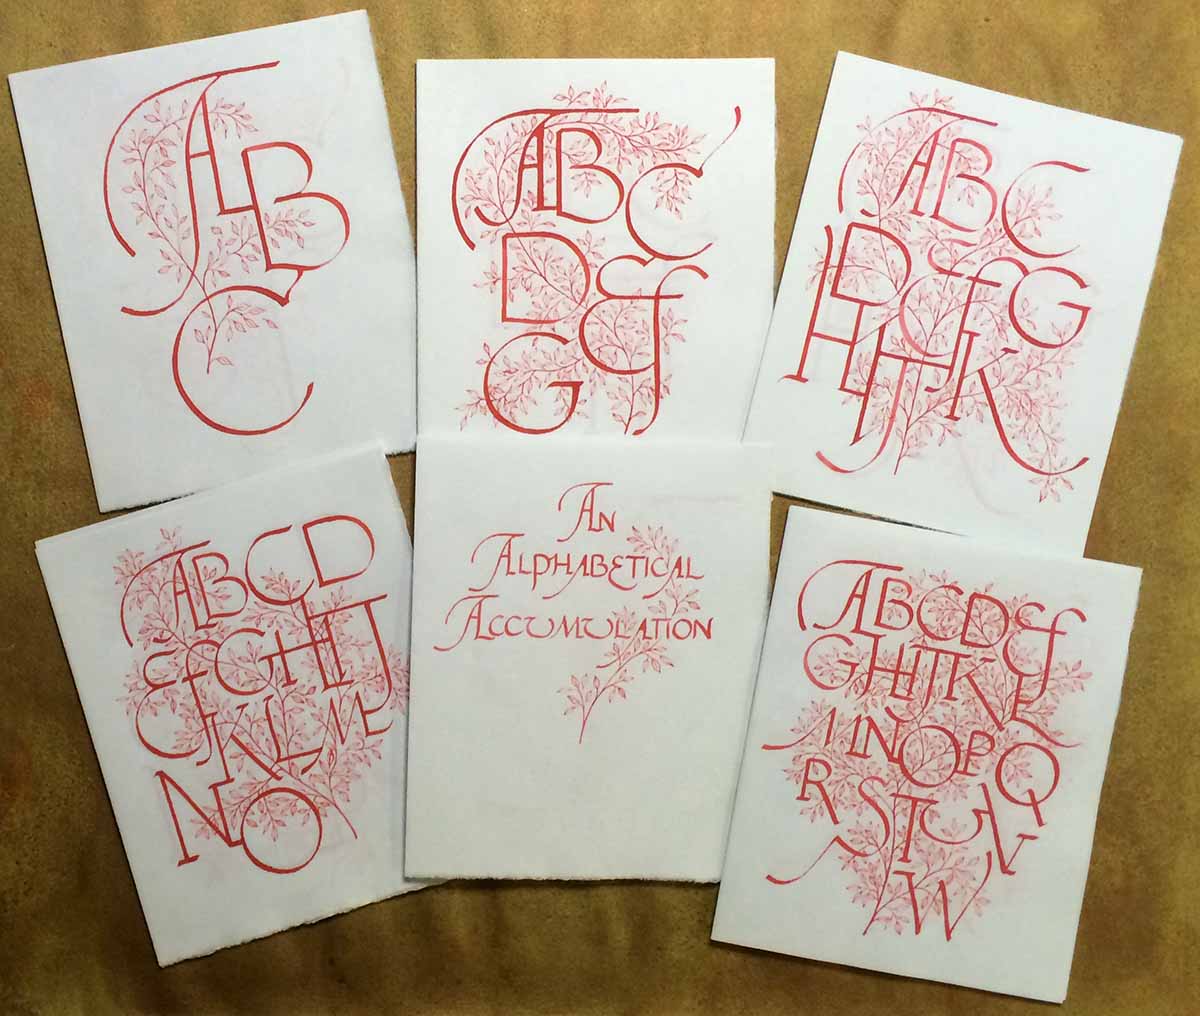 ABC
ABC
DEF
G
ABC
DEFG
HIJK
ABCD
EFGHIJ
KLM
NO
An
Alphabetical
Accumulation
ABCDEF
GHIJKL
MNOPQ
RSTUV
W